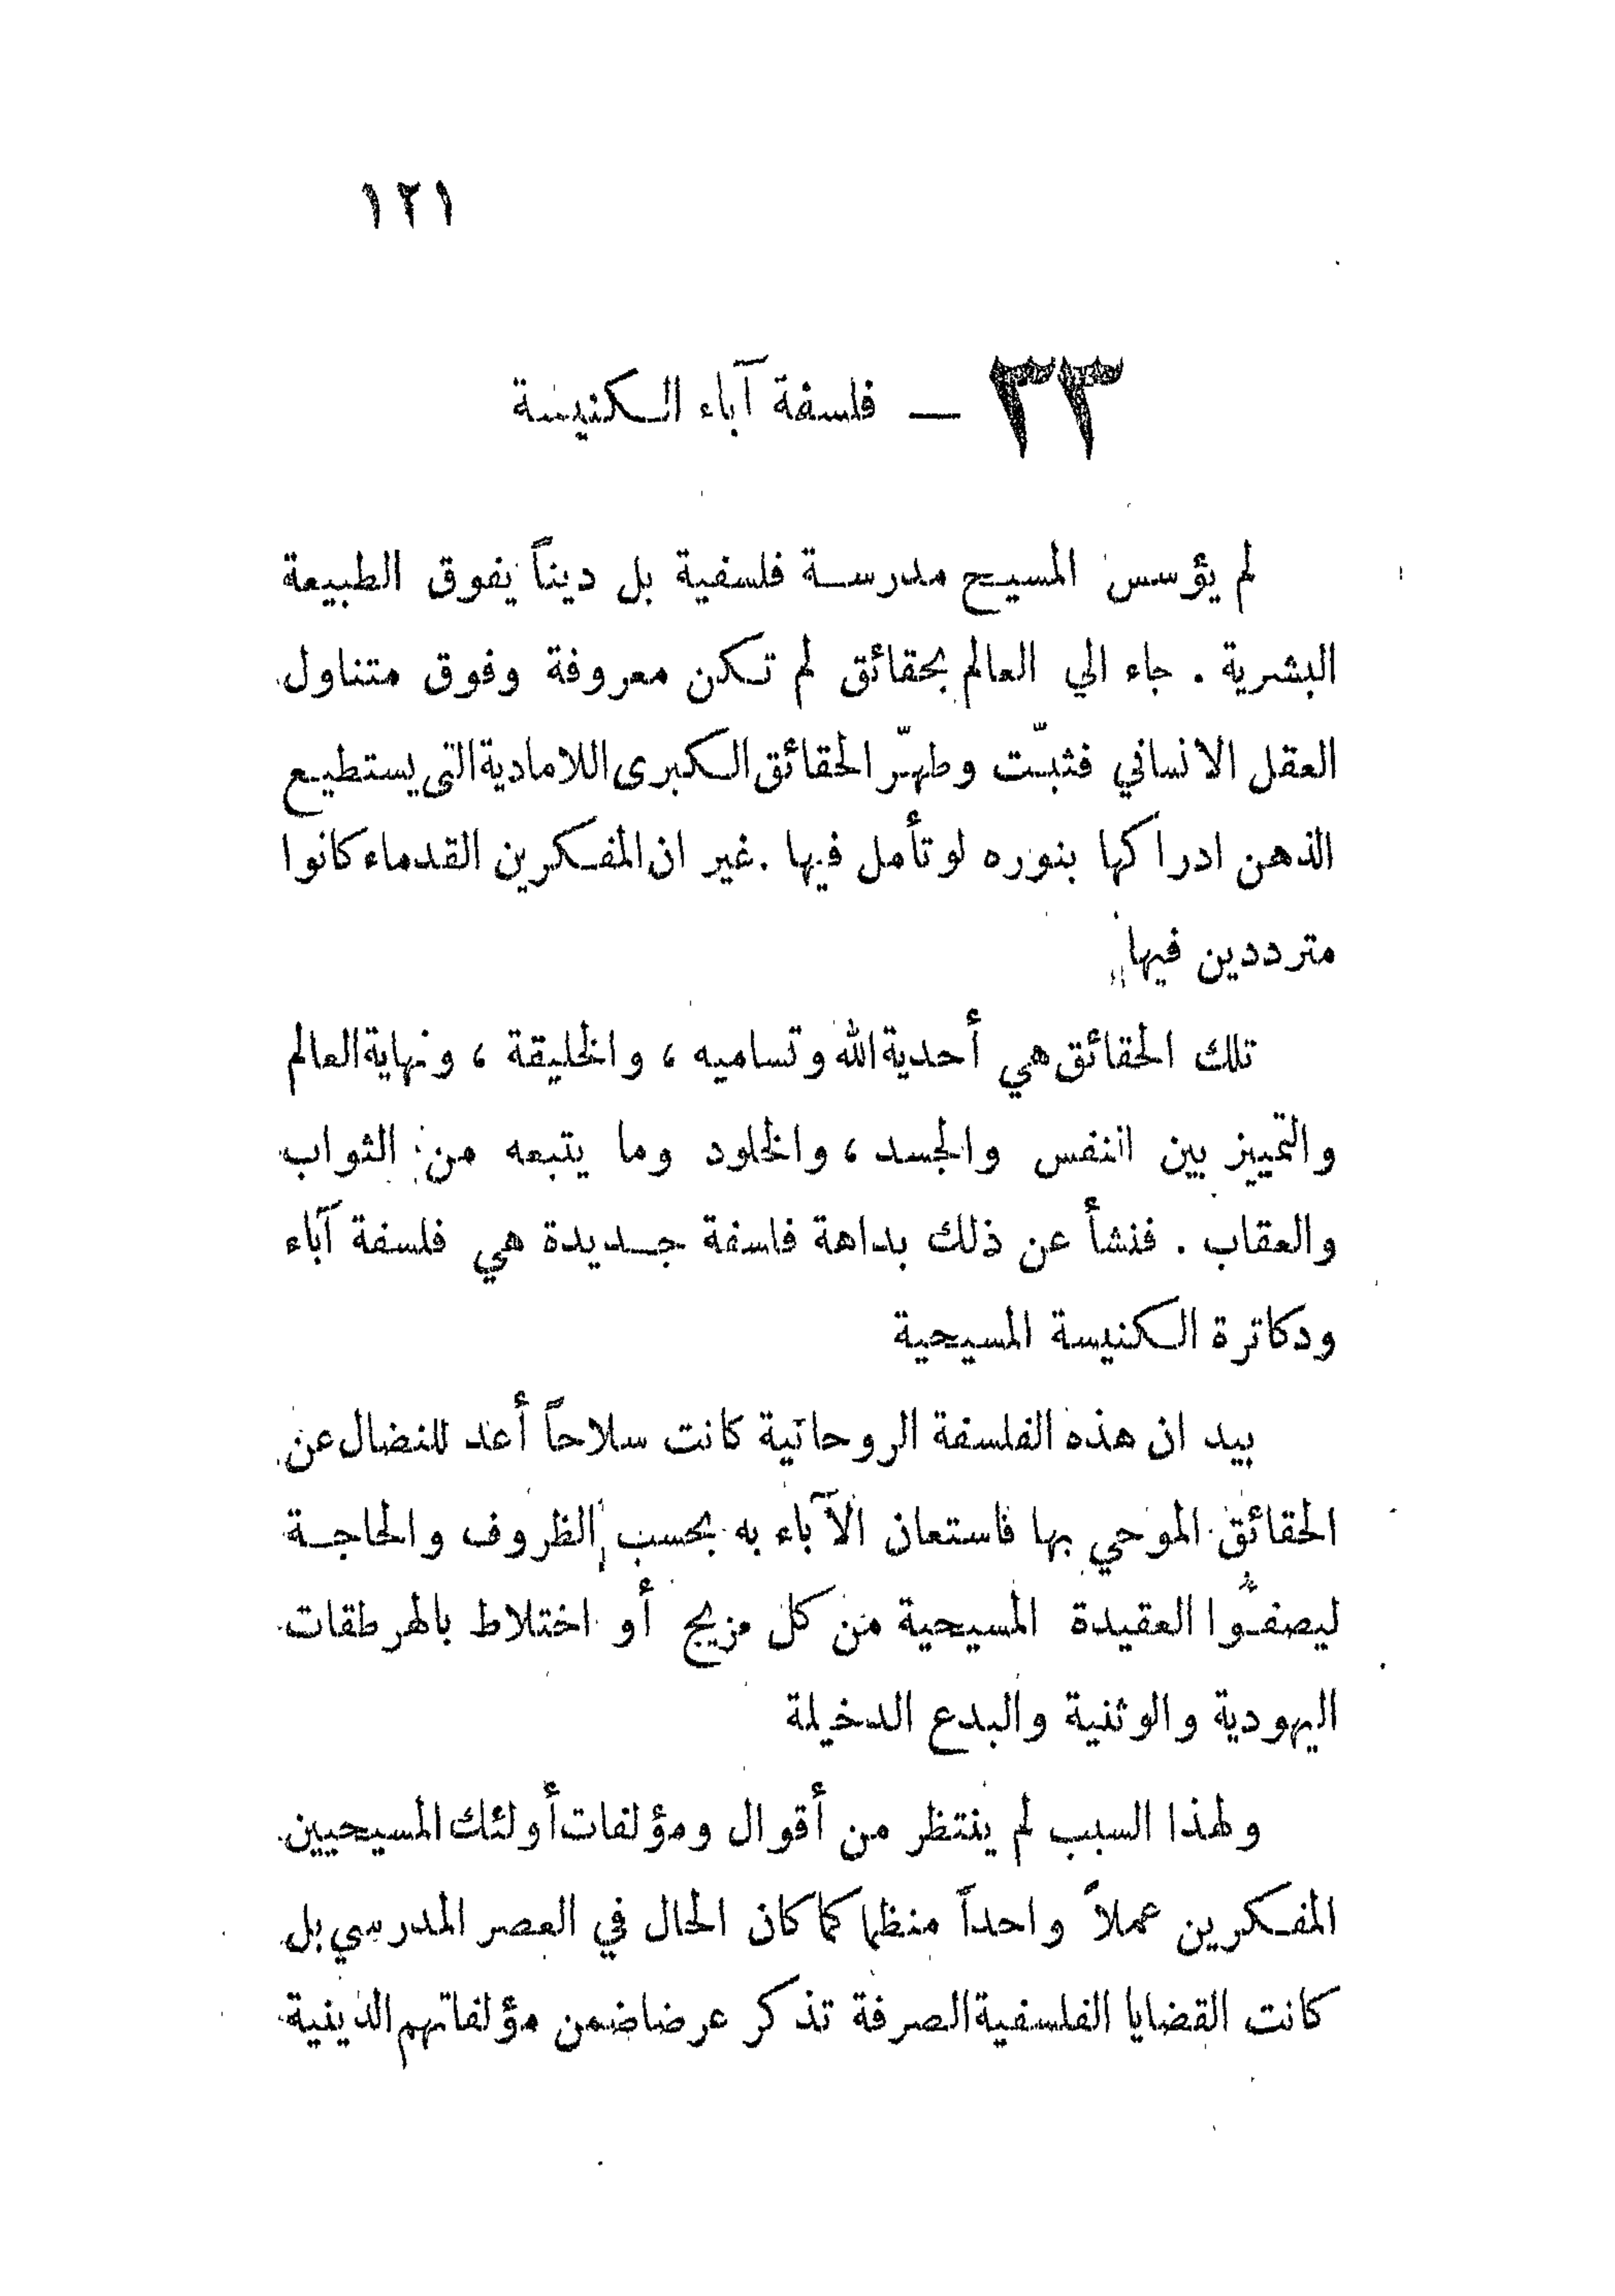 ١٢١
٣٣ — فلسفة آباء الكنيسة
لم يؤسس المسيح مدرسة فلسفية بل ديناً يفوق الطبيعة
البشرية . جاء الي العالم بحقائق لم تكن معروفة وفوق متناول
العقل الانساني فثبّت وطهّر الحقائق الكبرى اللامادية التى يستطيع
الذهن ادراكها بنوره لو تأمل فيها . غير ان المفكرين القدماء كانوا
مترددين فيها
تلك الحقائق هي أحدية الله وتساميه ، والخليقة ، ونهاية العالم
والتمييز بين النفس والجسد ، والخلود وما يتبعه من الثواب
والعقاب . فنشأ عن ذلك بداهة فلسفة جديدة هي فلسفة آباء
ودكاترة الكنيسة المسيحية
بيد ان هذه الفلسفة الروحانية كانت سلاحاً أعد للنضال عن
الحقائق الموحي بها فاستعان الآباء به بحسب الظروف والحاجة
ليصفّوا العقيدة المسيحية من كل مزيج أو اختلاط بالهرطقات
اليهودية والوثنية والبدع الدخيلة
ولهذا السبب لم ينتظر من أقوال ومؤلفات أولئك المسيحيين
المفكرين عملاً واحداً منظما كما كان الحال في العصر المدرسي بل
كانت القضايا الفلسفية الصرفة تذكر عرضا ضمن مؤلفاتهم الدينية